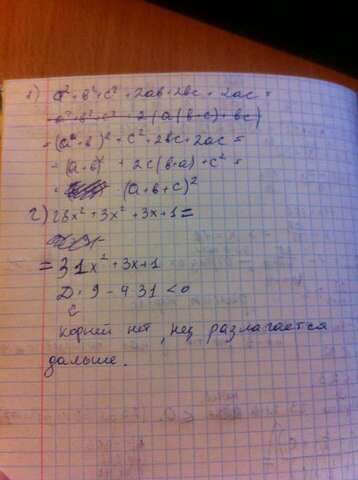 1) a² + b² + c² + 2ab + 2bc + 2ac =
a² + b² + c² + 2(a(b+c)+bc)
= (a + b)² + c² + 2bc + 2ac =
= (a+b)² + 2c(b+a) + c² =
= (a+b+c)²
2) 28x² + 3x² + 3x + 1 =
= 31x² + 3x + 1
D = 9 - 4 31 < 0
корней нет, не разлагается
дальше.